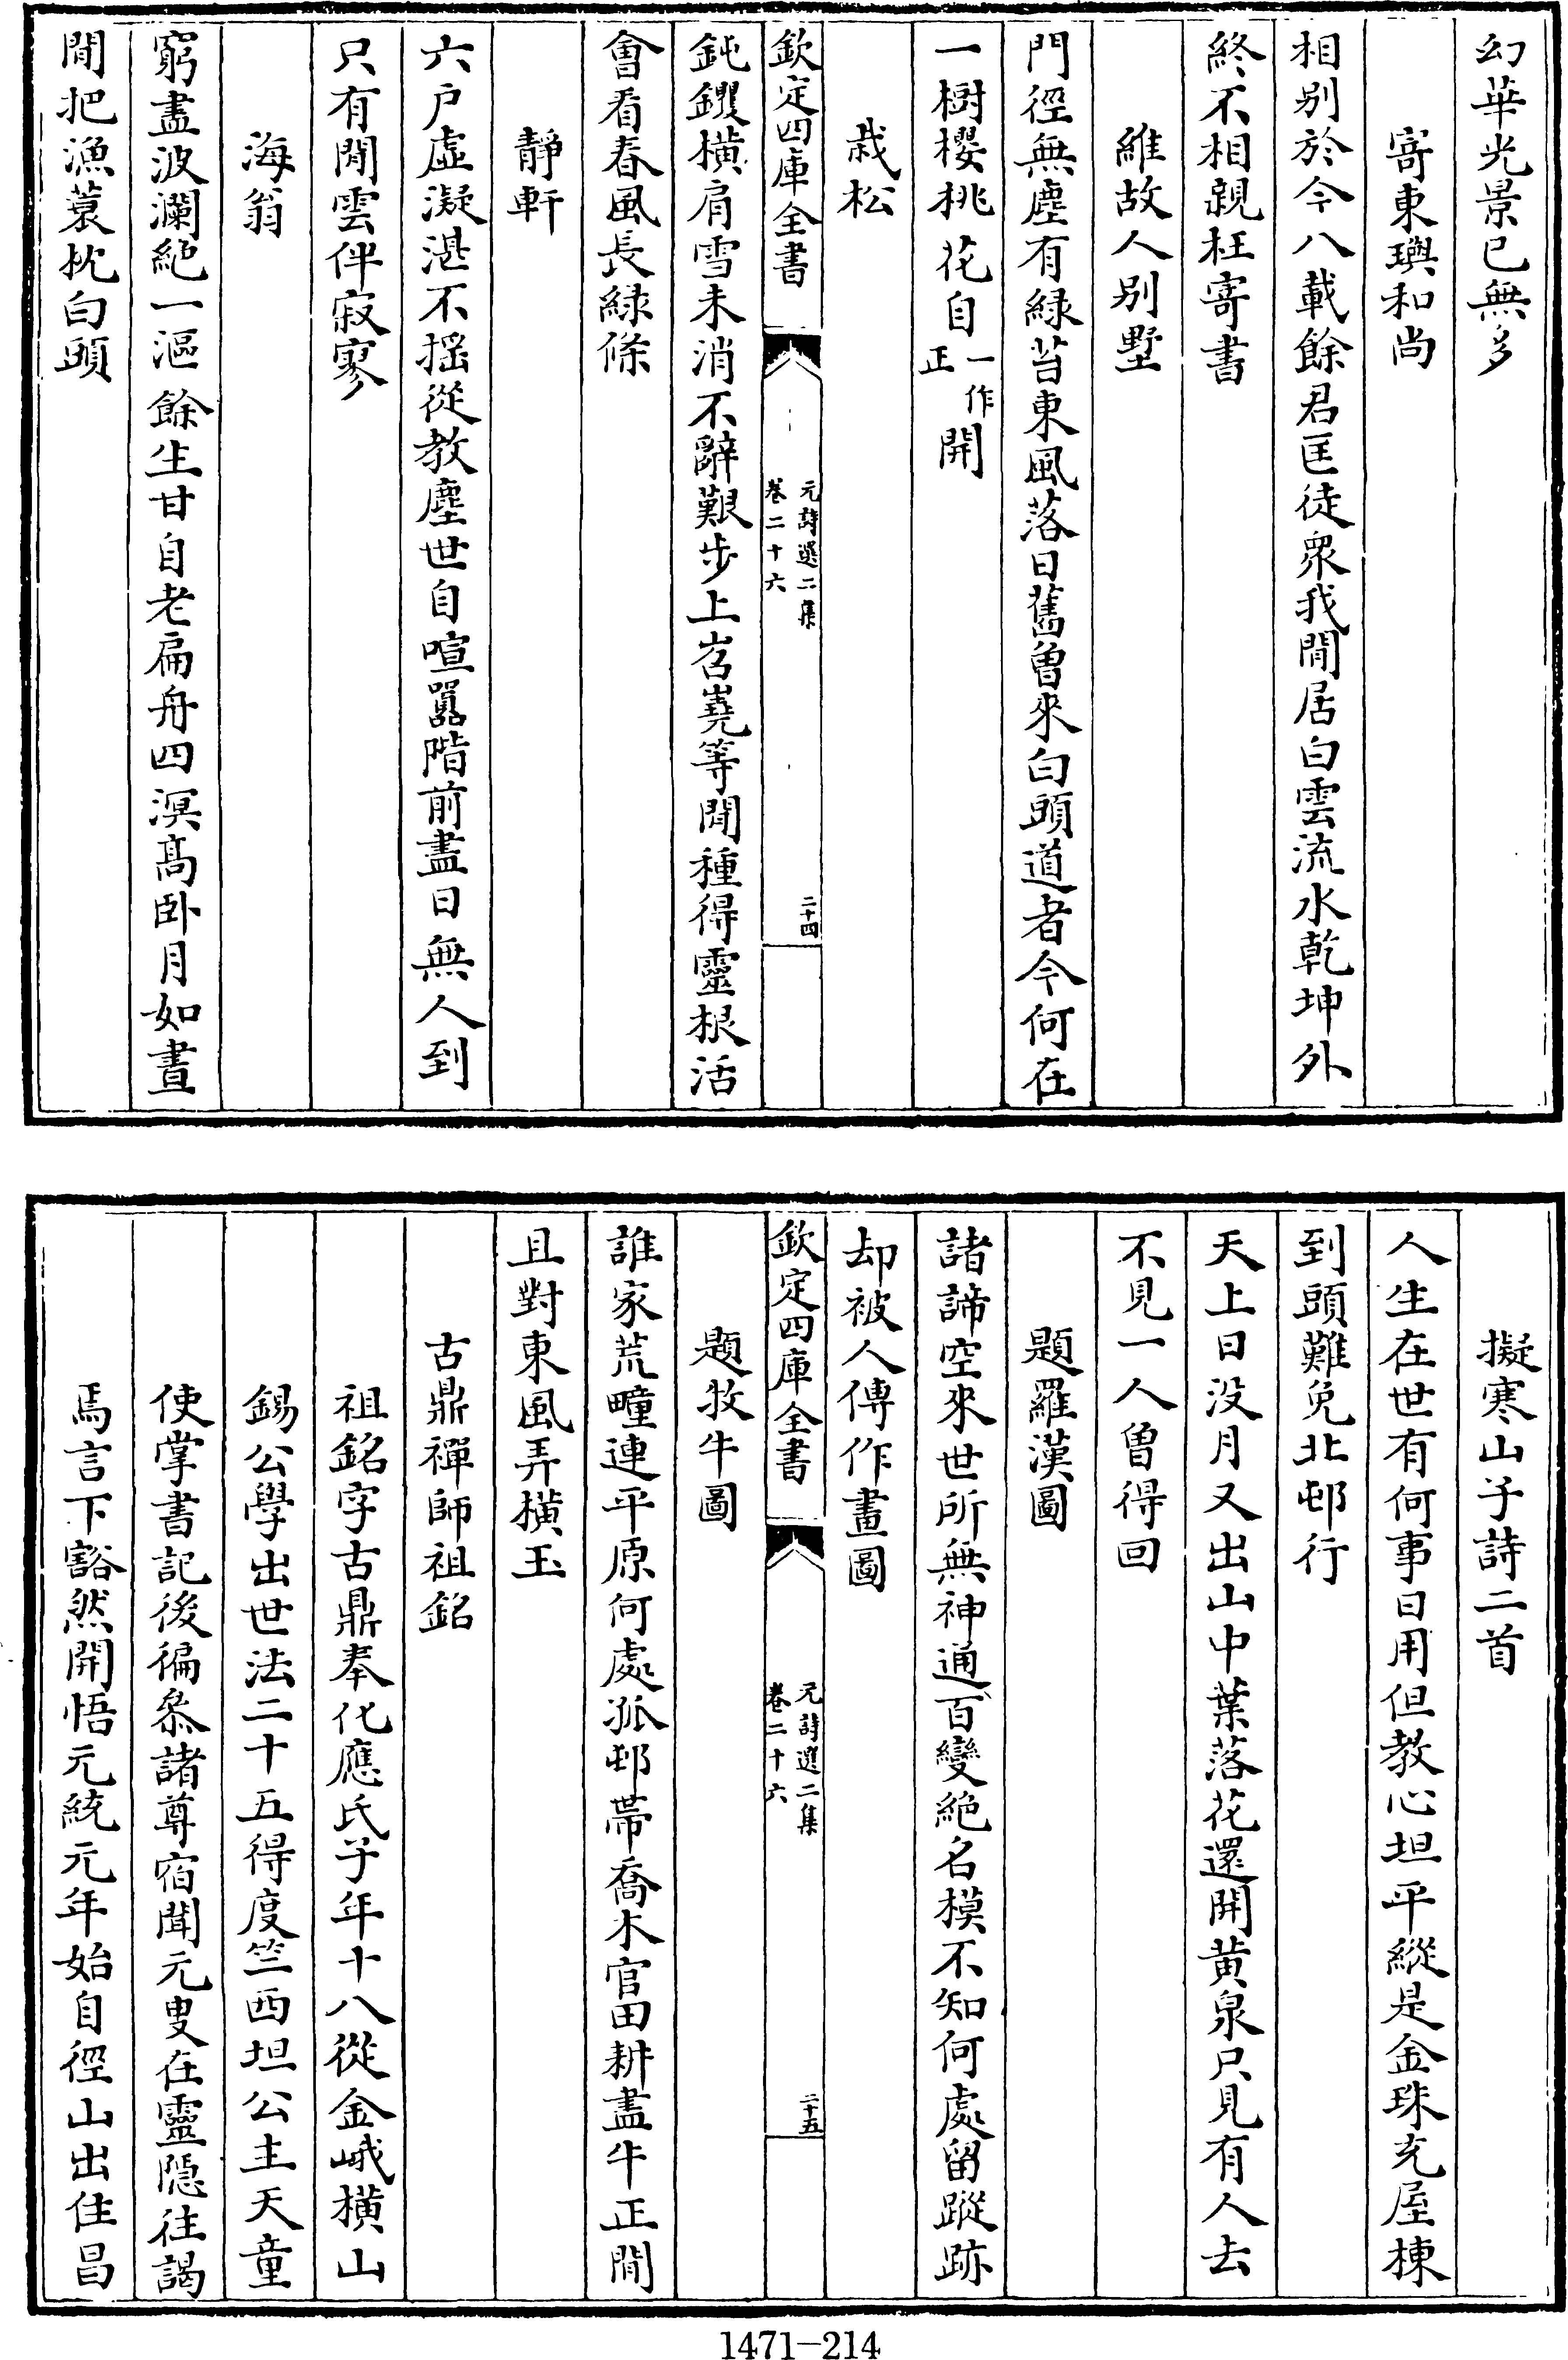 幻華光景已無多
寄東璵和尚
相别於今八載餘君匡徒衆我閒居白雲流水乾坤外
終不相親枉寄書
維故人别墅
門徑無塵有緑苔東風落日舊曾來白頭道者今何在
一樹櫻桃花自一作正開
栽松
欽定四庫全書
元詩選二集
卷二十六
二十四
鈍钁横肩雪未消不辭艱步上岧嶤等閒種得靈根活
會看春風長緑條
靜軒
六户虚凝湛不揺從教塵世自喧囂階前盡日無人到
只有閒雲伴寂寥
海翁
窮盡波瀾絶一漚餘生甘自老扁舟四溟髙卧月如晝
閒把漁蓑枕白頭
擬寒山子詩二首
人生在世有何事日用但教心坦平縱是金珠充屋棟
到頭難免北邙行
天上日没月又出山中葉落花還開黄泉只見有人去
不見一人曾得回
題羅漢圖
諸諦空來世所無神通百變絶名模不知何處留蹤跡
却被人傳作畫圖
欽定四庫全書
元詩選二集
卷二十六
二十五
題牧牛圖
誰家荒疃連平原何處孤邨帶喬木官田耕盡牛正閒
且對東風弄横玉
古鼎禪師祖銘
祖銘字古鼎奉化應氏子年十八從金峨横山
錫公學出世法二十五得度竺西坦公主天童
使掌書記後徧叅諸尊宿聞元叟在靈隱往謁
焉言下豁然開悟元統元年始自徑山出住昌
1471-214